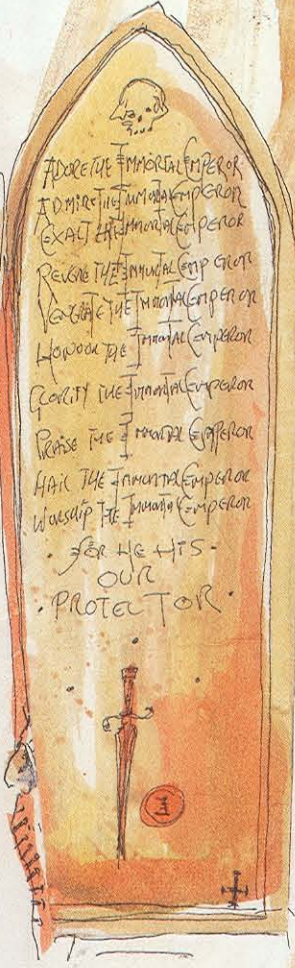 ADORE THE IMMORTAL EMPEROR
ADMIRE THE IMMORTAL EMPEROR
EXALT THE IMMORTAL EMPEROR
REVERE THE IMMORTAL EMPEROR
VENERATE THE IMMORTAL EMPEROR
HONOUR THE IMMORTAL EMPEROR
GLORIFY THE IMMORTAL EMPEROR
PRAISE THE IMMORTAL EMPEROR
HAIL THE IMMORTAL EMPEROR
WORSHIP THE IMMORTAL EMPEROR
· FOR HE HIS ·
OUR
· PROTECTOR ·
I